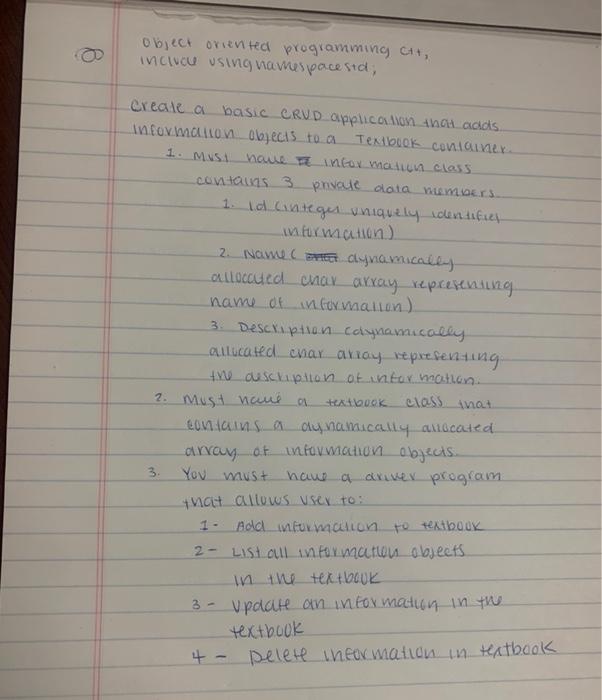 object oriented programming C++,
include using namespace std;
Create a basic CRUD application that adds
information objects to a Textbook container.
1. Must have information class
contains 3 private data members.
1. Id (integer uniquely identifies
information)
2. Name ( dynamically
allocated char array representing
name of information)
3. Description (dynamically
allocated char array representing
the description of information.
2. Must have a textbook class that
contains a dynamically allocated
array of information objects.
3. You must have a driver program
that allows user to:
1- Add information to textbook
2- List all information objects
in the textbook
3- Update an information in the
textbook
4- Delete information in textbook